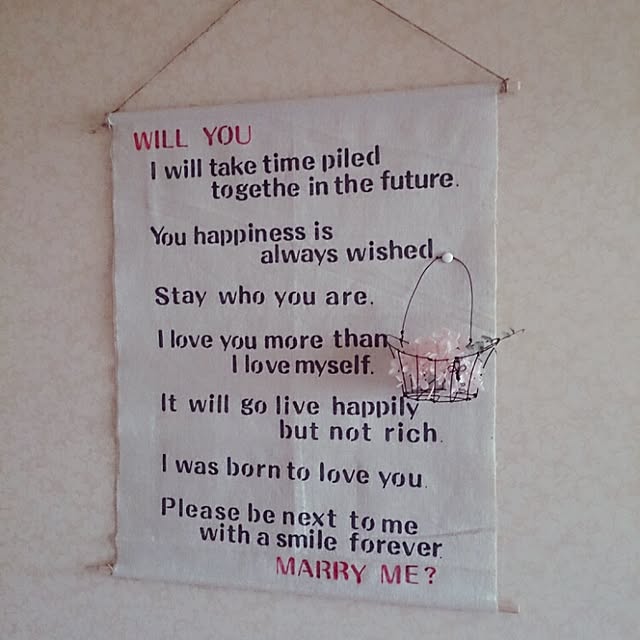 WILL YOU
I will take time piled
togethe in the future.
You happiness is
always wished.
Stay who you are.
I love you more than
I love myself.
It will go live happily
but not rich.
I was born to love you.
Please be next to me
with a smile forever.
MARRY ME?